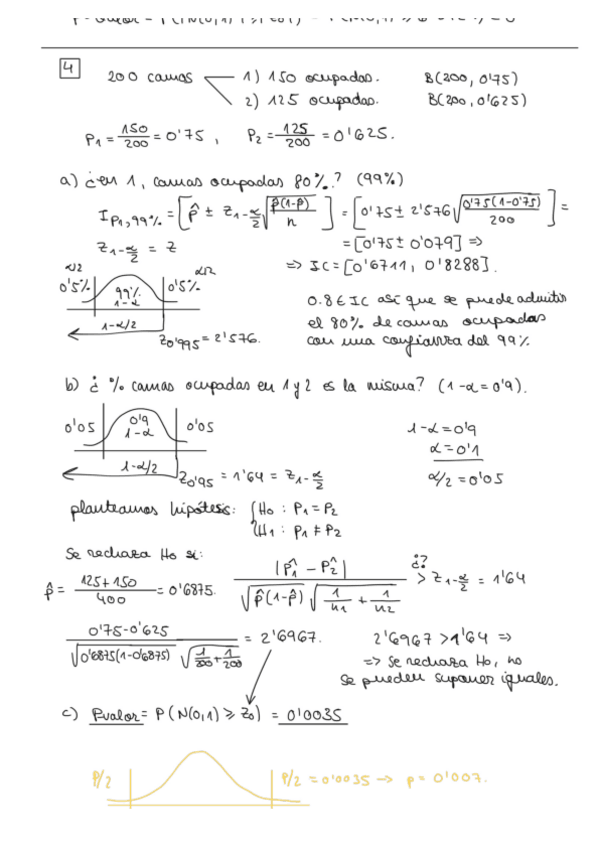 4
200 camas
1) 150 ocupadas. B(200, 0'75)
2) 125 ocupadas. B(200, 0'625)
P1 = 150/200 = 0'75 , P2 = 125/200 = 0'625.
a) ¿en 1, camas ocupadas 80%? (99%)
I P1,99% = [p̂ ± Z1-α/2 √(p̂(1-p̂)/n)] = [0'75 ± 2'576 √(0'75(1-0'75)/200)] =
Z1-α/2 = Z
= [0'75 ± 0'079] =>
=> IC = [0'6711, 0'8288].
α/2 α/2
0'5% 99% 0'5%
1-α
1-α/2
Z0'995 = 2'576.
0.8 ∈ IC así que se puede admitir
el 80% de camas ocupadas
con una confianza del 99%
b) ¿% camas ocupadas en 1 y 2 es la misma? (1-α = 0'9).
0'05 0'9 0'05
1-α
1-α/2
Z0'95 = 1'64 = Z1-α/2
1-α = 0'9
α = 0'1
α/2 = 0'05
planteamos hipótesis: { H0 : P1 = P2
H1 : P1 ≠ P2
Se rechaza H0 si:
p̂ = 125+150/400 = 0'6875.
|p̂1 - p̂2| / √(p̂(1-p̂)) √(1/n1 + 1/n2) ¿? > Z1-α/2 = 1'64
0'75-0'625 / √(0'6875(1-0'6875)) √(1/200 + 1/200) = 2'6967.
2'6967 > 1'64 =>
=> Se rechaza H0, no
se pueden suponer iguales.
c) Pvalor = P(N(0,1) ≥ Z0) = 0'0035
P/2 P/2 = 0'0035 → p = 0'007.